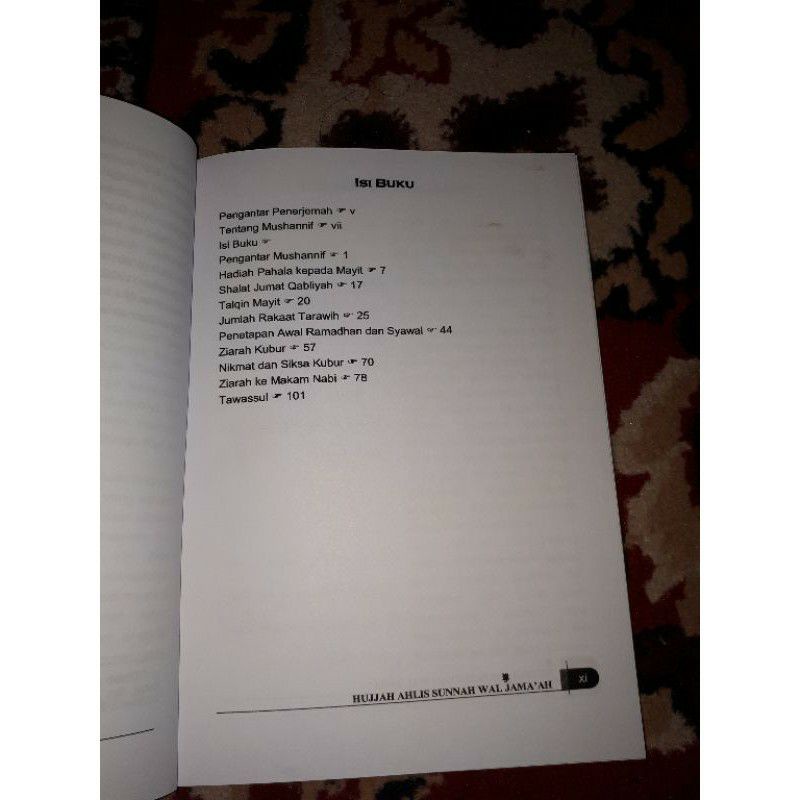 ISI BUKU
Pengantar Penerjemah ☞ v
Tentang Mushannif ☞ vii
Isi Buku ☞
Pengantar Mushannif ☞ 1
Hadiah Pahala kepada Mayit ☞ 7
Shalat Jumat Qabliyah ☞ 17
Talqin Mayit ☞ 20
Jumlah Rakaat Tarawih ☞ 25
Penetapan Awal Ramadhan dan Syawal ☞ 44
Ziarah Kubur ☞ 57
Nikmat dan Siksa Kubur ☞ 70
Ziarah ke Makam Nabi ☞ 78
Tawassul ☞ 101
HUJJAH AHLIS SUNNAH WAL JAMA'AH xi